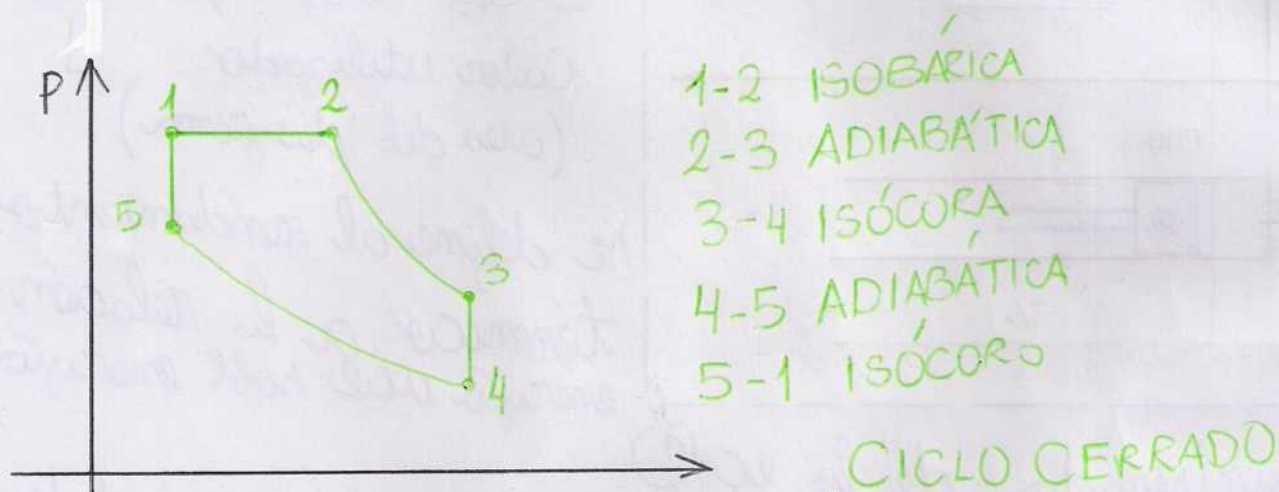 P
1
2
5
3
4
1-2 ISOBÁRICA
2-3 ADIABÁTICA
3-4 ISÓCORA
4-5 ADIABÁTICA
5-1 ISÓCORO
CICLO CERRADO